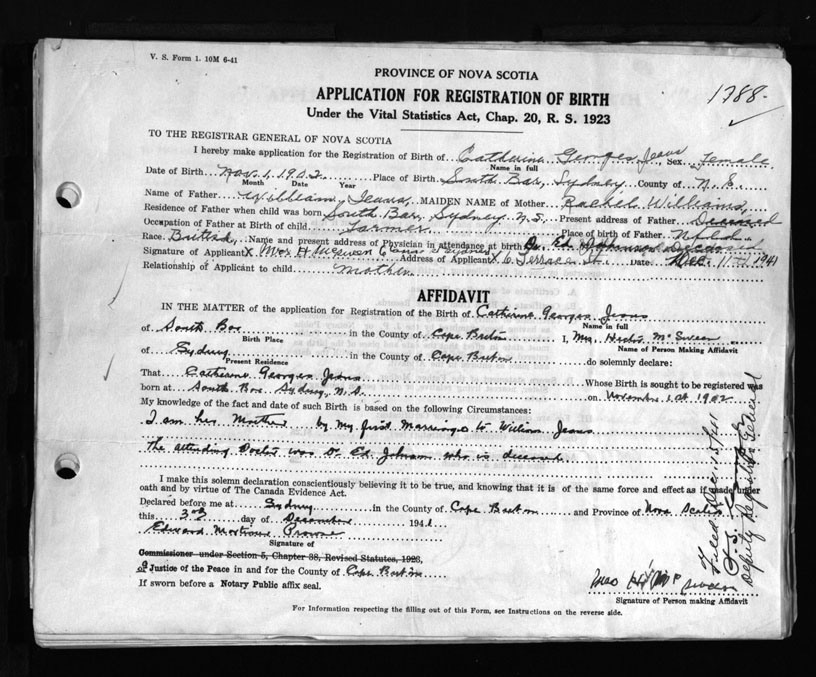 V. S. Form 1. 10M 6-41
PROVINCE OF NOVA SCOTIA
1788-
APPLICATION FOR REGISTRATION OF BIRTH
Under the Vital Statistics Act, Chap. 20, R. S. 1923
TO THE REGISTRAR GENERAL OF NOVA SCOTIA
I hereby make application for the Registration of Birth of Catherine Georges Jeans Sex Female
Name in full
Date of Birth Nov. 1, 1902 Place of Birth South Bar, Sydney County of N.S.
Month Date Year
Name of Father William Jeans, MAIDEN NAME of Mother Rachel Williams,
Residence of Father when child was born South Bar, Sydney N.S. Present address of Father Deceased
Occupation of Father at Birth of child Farmer Place of birth of Father Nfld
Race British Name and present address of Physician in attendance at birth Dr. Ed. Johnson Deceased
Signature of Applicant X Mrs H Sydney Address of Applicant X 6 Terrace St. Date Dec 11 1941
Relationship of Applicant to child Mother
AFFIDAVIT
IN THE MATTER of the application for Registration of Birth of Catherine Georges Jeans
Name in full
of South Bar in the County of Cape Breton I, Mrs Hector McSween
Birth Place Name of Person Making Affidavit
of Sydney in the County of Cape Breton do solemnly declare:
Present Residence
That Catherine Georges Jeans Whose Birth is sought to be registered was
born at South Bar Sydney, N.S. on November 1st 1902
My knowledge of the fact and date of such Birth is based on the following Circumstances:
I am her Mother by my first Marriage to William Jeans
The attending Doctor was Dr Ed. Johnson who is deceased
I make this solemn declaration conscientiously believing it to be true, and knowing that it is of the same force and effect as if made under
oath and by virtue of The Canada Evidence Act.
Declared before me at Sydney in the County of Cape Breton and Province of Nova Scotia
this 3rd day of December 1941
Edward Mortimer
Signature of
Commissioner under Section 5, Chapter 38, Revised Statutes, 1923,
a Justice of the Peace in and for the County of Cape Breton
If sworn before a Notary Public affix seal.
Mrs H McSween
Signature of Person making Affidavit
For Information respecting the filling out of this Form, see Instructions on the reverse side.
Filed Dec 15/41
Deputy Registrar General